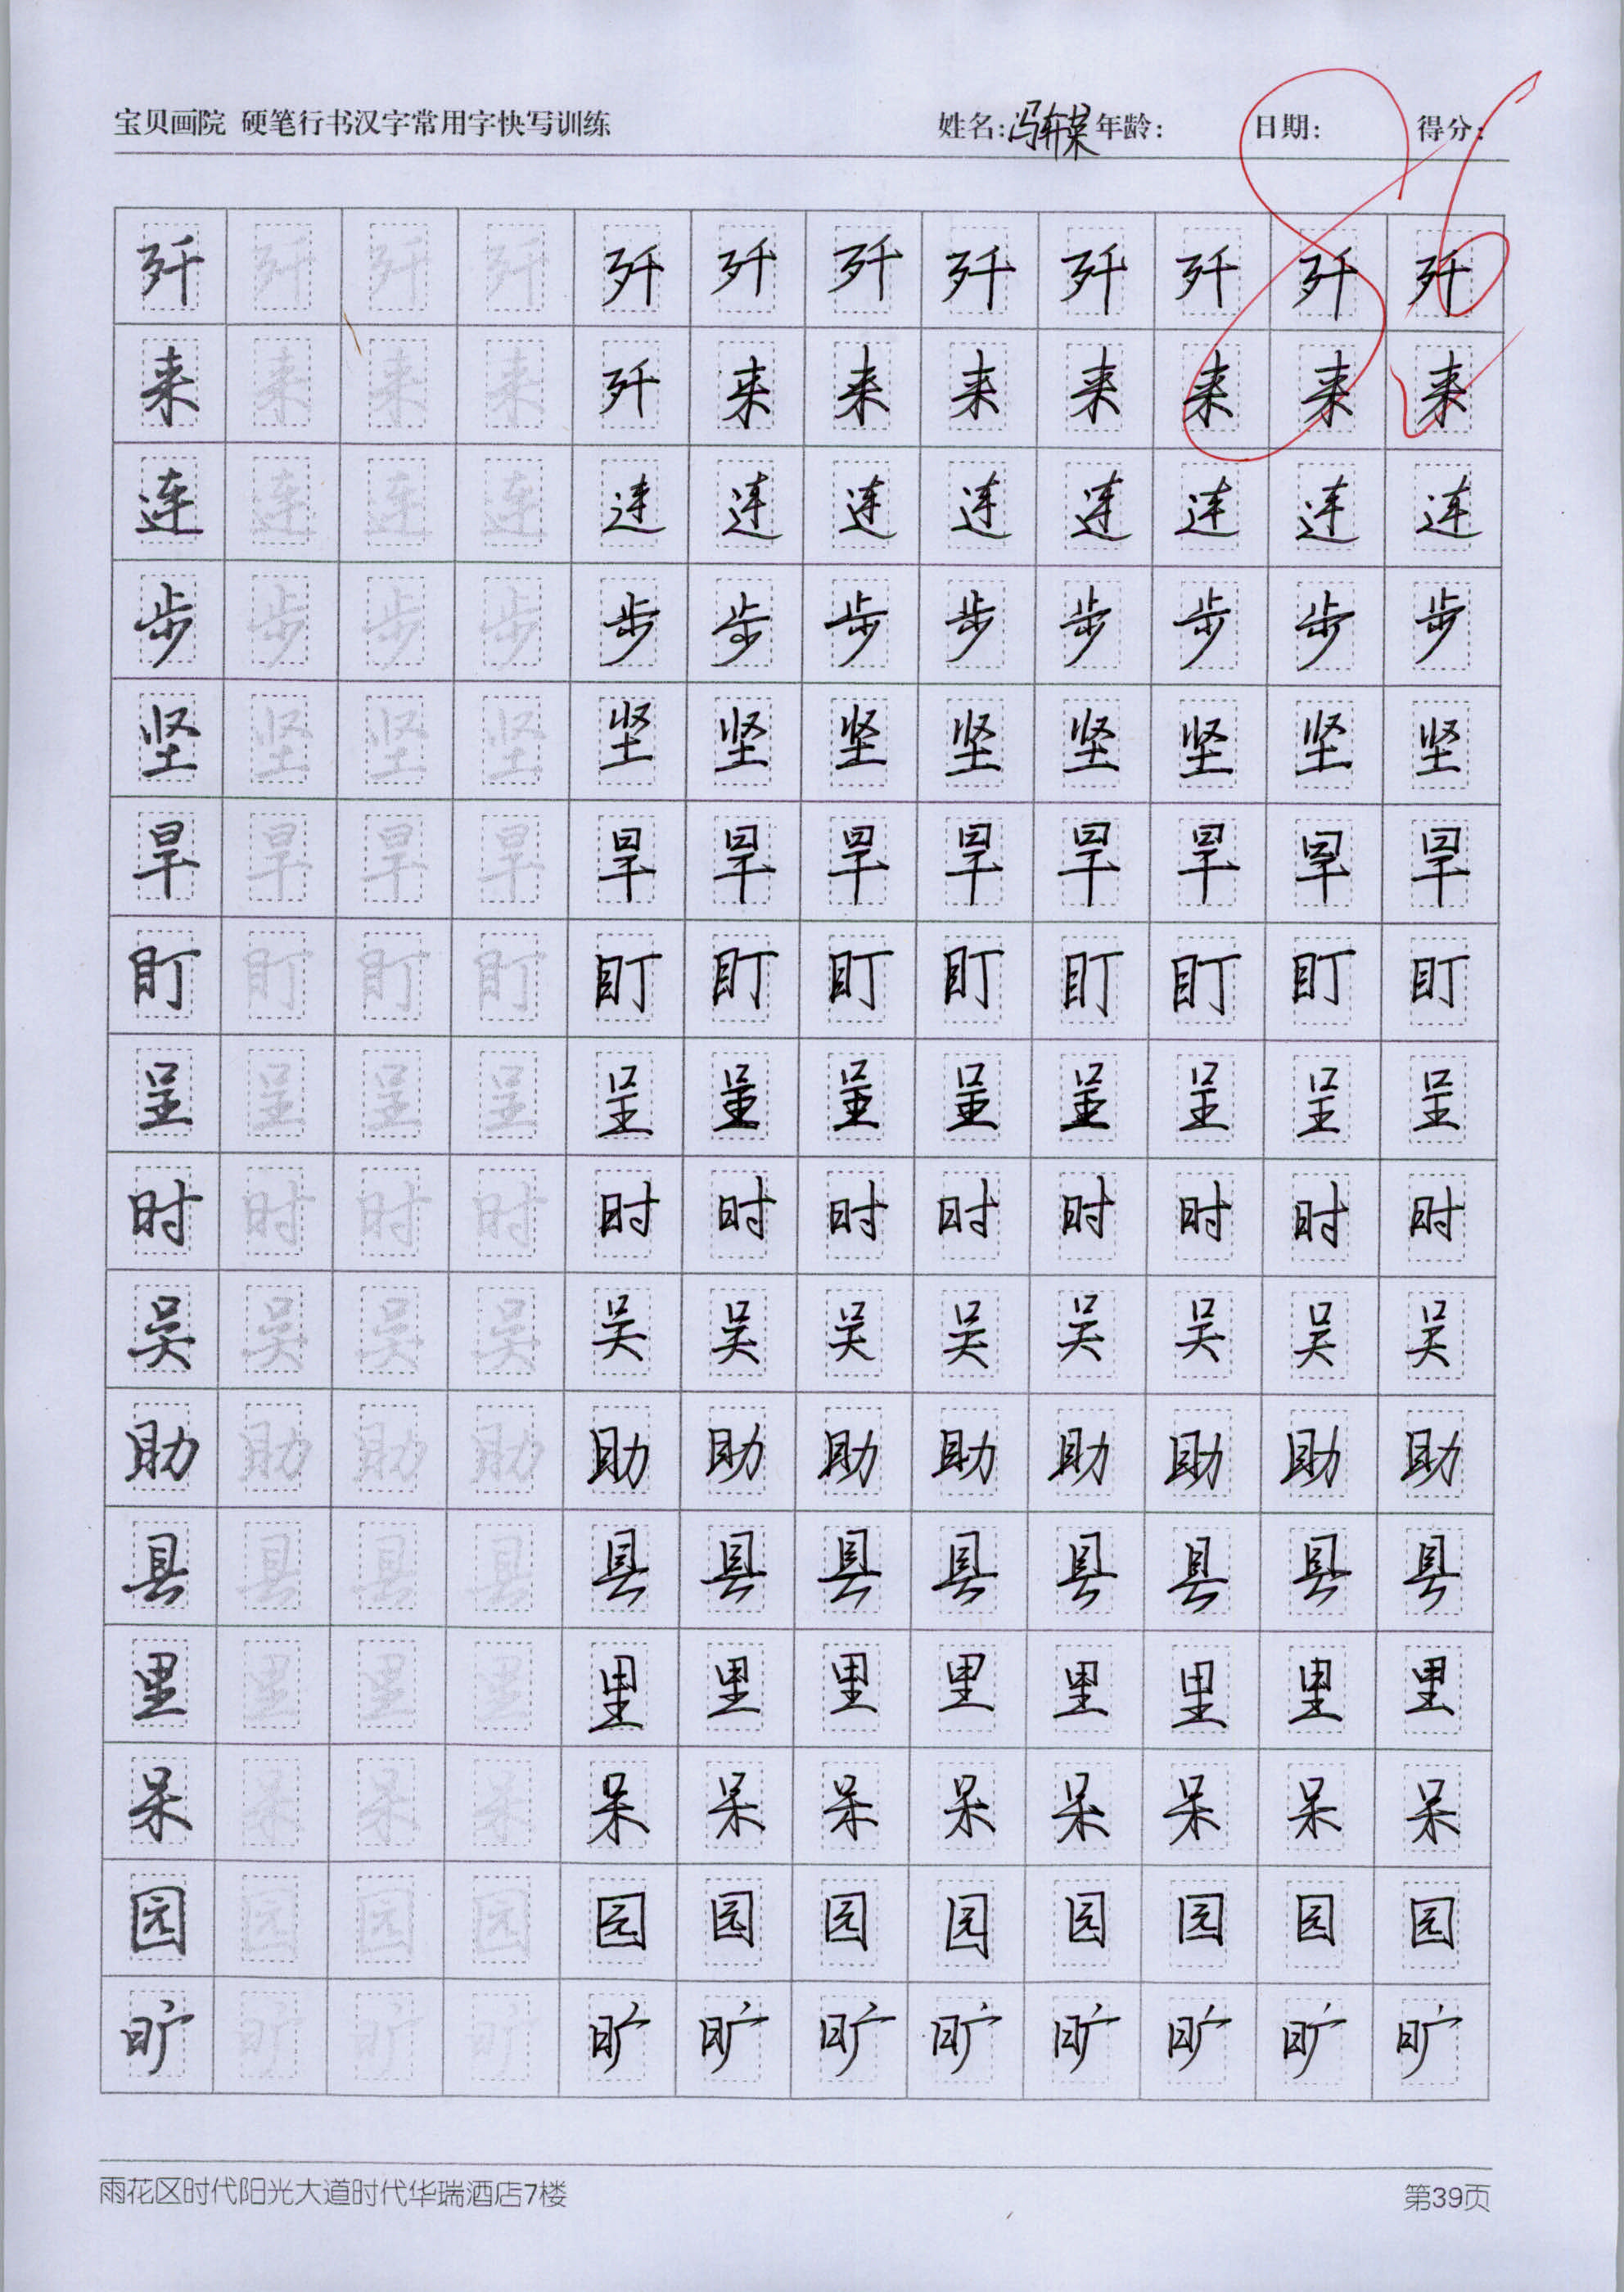 宝贝画院 硬笔行书汉字常用字快写训练 姓名:冯轩 年龄: 日期: 得分: 86
歼 歼 歼 歼 歼 歼 歼 歼 歼 歼 歼 歼
来 来 来 来 歼 来 来 来 来 来 来 来
连 连 连 连 连 连 连 连 连 连 连 连
步 步 步 步 步 步 步 步 步 步 步 步
坚 坚 坚 坚 坚 坚 坚 坚 坚 坚 坚 坚
旱 旱 旱 旱 旱 旱 旱 旱 旱 旱 旱 旱
盯 盯 盯 盯 盯 盯 盯 盯 盯 盯 盯 盯
呈 呈 呈 呈 呈 呈 呈 呈 呈 呈 呈 呈
时 时 时 时 时 时 时 时 时 时 时 时
吴 吴 吴 吴 吴 吴 吴 吴 吴 吴 吴 吴
助 助 助 助 助 助 助 助 助 助 助 助
县 县 县 县 县 县 县 县 县 县 县 县
里 里 里 里 里 里 里 里 里 里 里 里
呆 呆 呆 呆 呆 呆 呆 呆 呆 呆 呆 呆
园 园 园 园 园 园 园 园 园 园 园 园
旷 旷 旷 旷 旷 旷 旷 旷 旷 旷 旷 旷
雨花区时代阳光大道时代华瑞酒店7楼 第39页